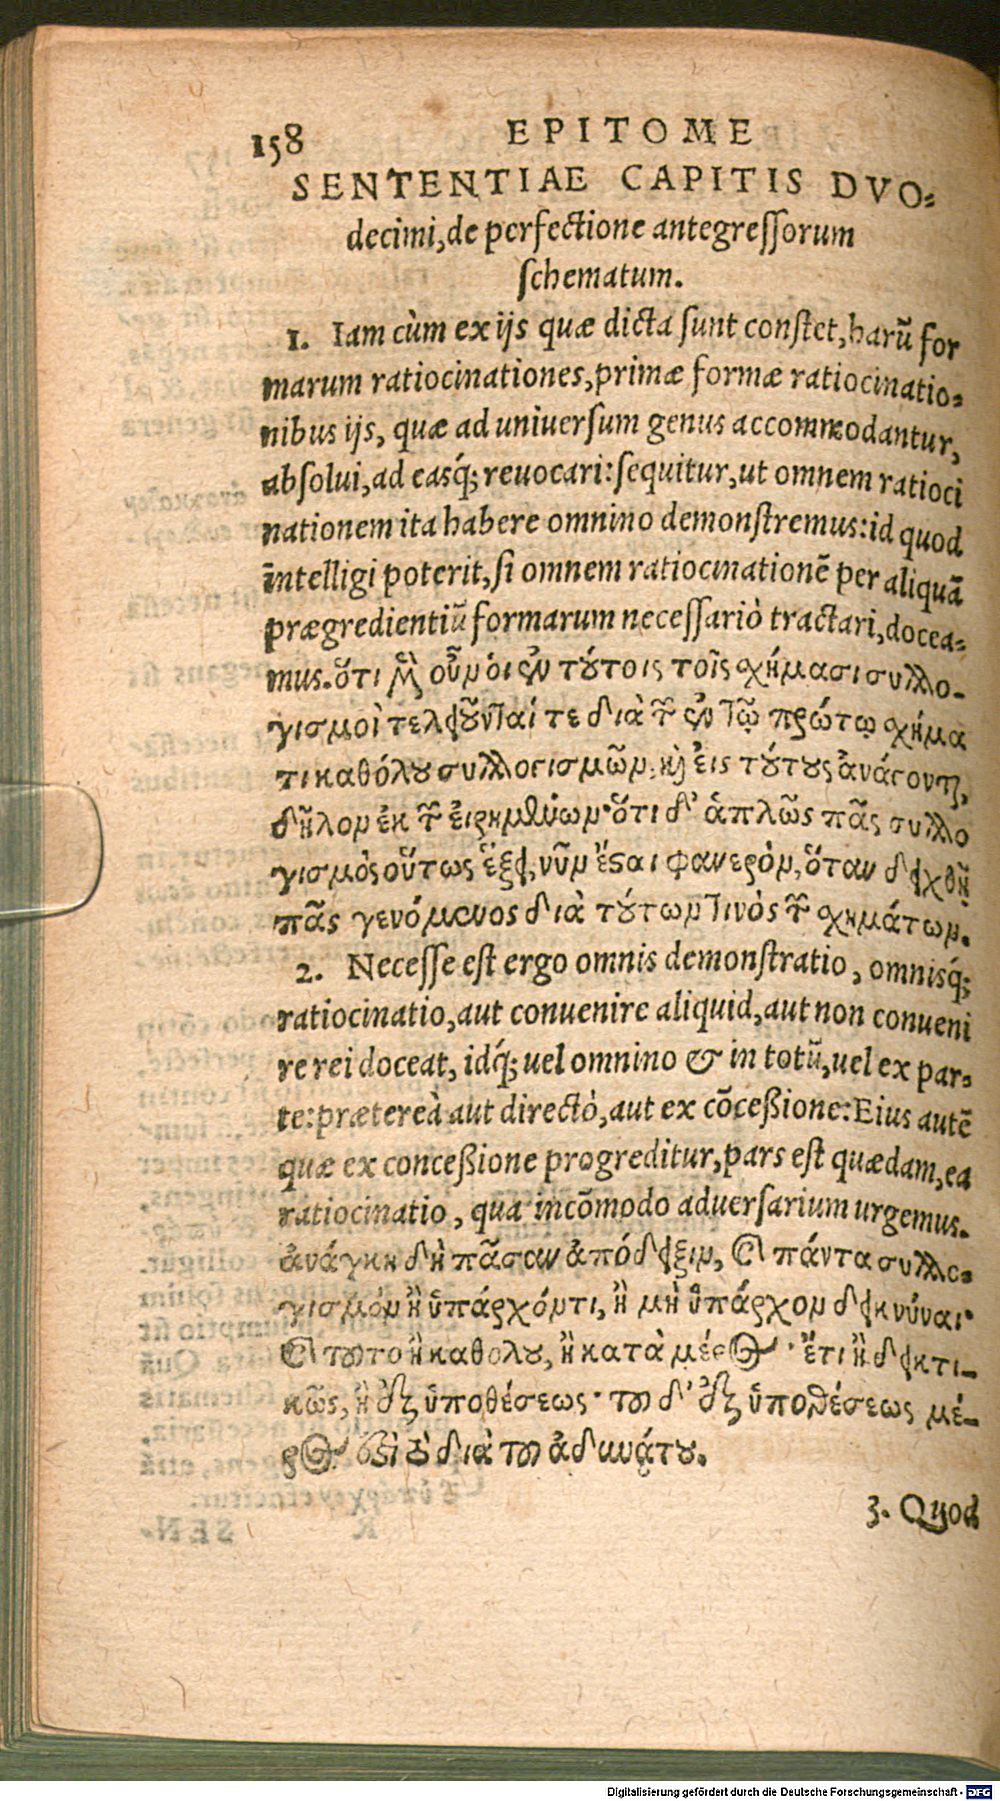 158 EPITOME
SENTENTIAE CAPITIS DVO-
decimi, de perfectione antegressorum
schematum.
1. Iam cùm ex ijs quæ dicta sunt constet, harũ for
marum ratiocinationes, primæ formæ ratiocinatio-
nibus ijs, quæ ad uniuersum genus accommodantur,
absolui, ad easq́; reuocari: sequitur, ut omnem ratioci
nationem ita habere omnino demonstremus: id quod
intelligi poterit, si omnem ratiocinationẽ per aliquã
prægredientiũ formarum necessariò tractari, docea-
mus. ὅτι μὲν οὖν ὁι ἐν τούτοις τοῖς σχήμασι συλλο-
γισμοὶ τελειοῦνταί τε διὰ τῶν ἐν τῷ πρώτῳ σχήμα
τι καθόλου συλλογισμῶν, καὶ ἐις τούτους ἀνάγονται,
δῆλον ἐκ τῶν ἐιρημένων· ὅτι δ᾽ ἁπλῶς πᾶς συλλο
γισμὸς οὕτως ἕξει, νῦν ἔσαι φανερὸν, ὅταν δειχθῇ
πᾶς γενόμενος διὰ τούτων τινὸς τῶν σχημάτων.
2. Necesse est ergo omnis demonstratio, omnisq́;
ratiocinatio, aut conuenire aliquid, aut non conueni
re rei doceat, idq́; uel omnino & in totũ, uel ex par-
te: prætereà aut directò, aut ex cõceßione: Eius autẽ
quæ ex conceßione progreditur, pars est quædam, ea
ratiocinatio, qua incõmodo aduersarium urgemus.
ἀνάγκη δὴ πᾶσαν ἀπόδειξιν, καὶ πάντα συλλο-
γισμὸν ἢ ὑπάρχόντι, ἢ μὴ ὑπάρχον δεικνύναι·
καὶ τοῦτο ἢ καθολου, ἢ κατὰ μέρος· ἔτι ἢ δεικτι-
κῶς, ἢ ἐξ ὑποθέσεως· τοῦ δ᾽ ἐξ ὑποθέσεως μέ-
ρος ἐστὶ τὸ διὰ τοῦ ἀδυνάτου.
3. Quod
Digitalisierung gefördert durch die Deutsche Forschungsgemeinschaft - DFG